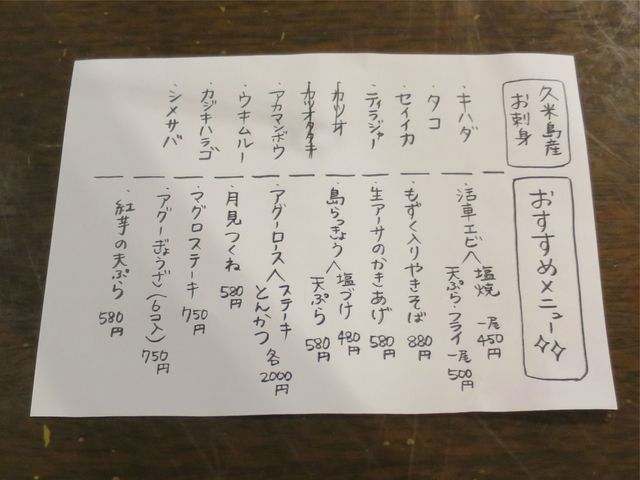 久米島産
お刺身
・キハダ
・タコ
・セイイカ
・ティラジャー
・カツオ
・カツオタタキ
・アカマンボウ
・ウキムルー
・カジキハラゴ
・シメサバ
おすすめメニュー
・活車エビ 塩焼 一尾 450円
天ぷら・フライ 一尾 500円
・もずく入りやきそば 880円
・生アーサのかきあげ 580円
・島らっきょう 塩づけ 480円
天ぷら 580円
・アグーロース ステーキ
とんかつ 各2000円
・月見つくね 580円
・マグロステーキ 750円
・アグーぎょうざ(6コ入) 750円
・紅芋の天ぷら 580円